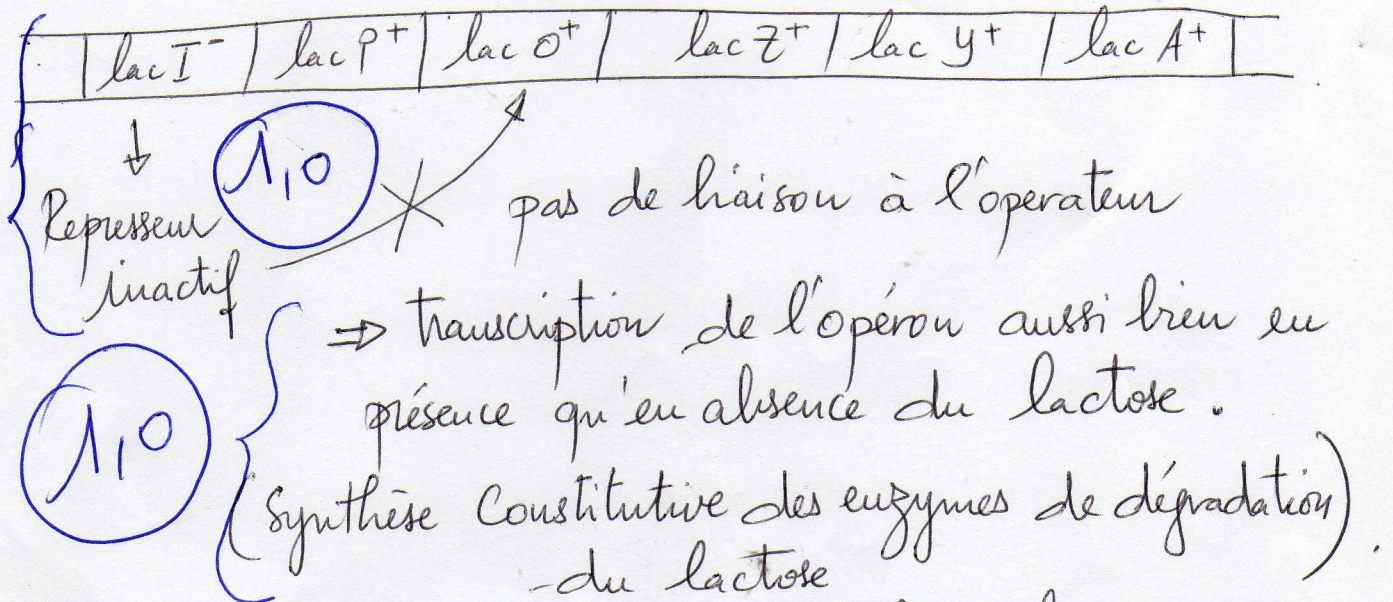 lac I⁻ | lac P⁺ | lac O⁺ | lac Z⁺ | lac Y⁺ | lac A⁺
1,0
Represseur
inactif
pas de liaison à l'operateur
⇒ transcription de l'opéron aussi bien en
présence qu'en absence du lactose.
1,0
(Synthèse Constitutive des enzymes de dégradation)
du lactose